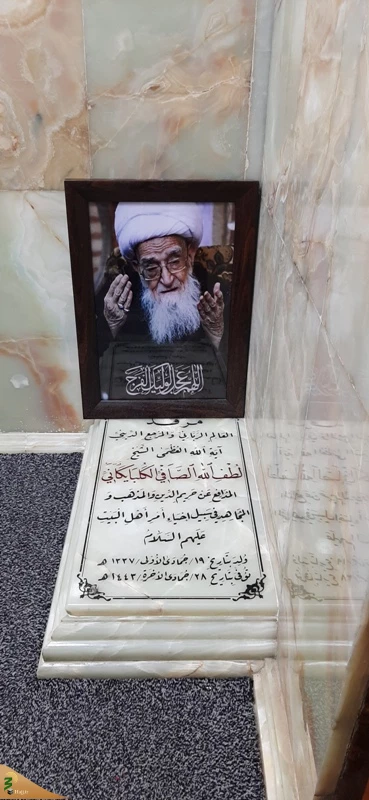 اللهم عجل لوليك الفرج
مرقد
العالم الرباني والمرجع الديني
آية الله العظمى الشيخ
لطف الله الصافي الكلبايكاني
المدافع عن حريم الدين والمذهب و
المجاهد في سبيل احياء أمر أهل البيت
عليهم السلام
ولد بتاريخ ١٩/ جمادى الأول/ ١٣٣٧ هـ
توفي بتاريخ ٢٨/ جمادى الآخرة/ ١٤٤٣ هـ